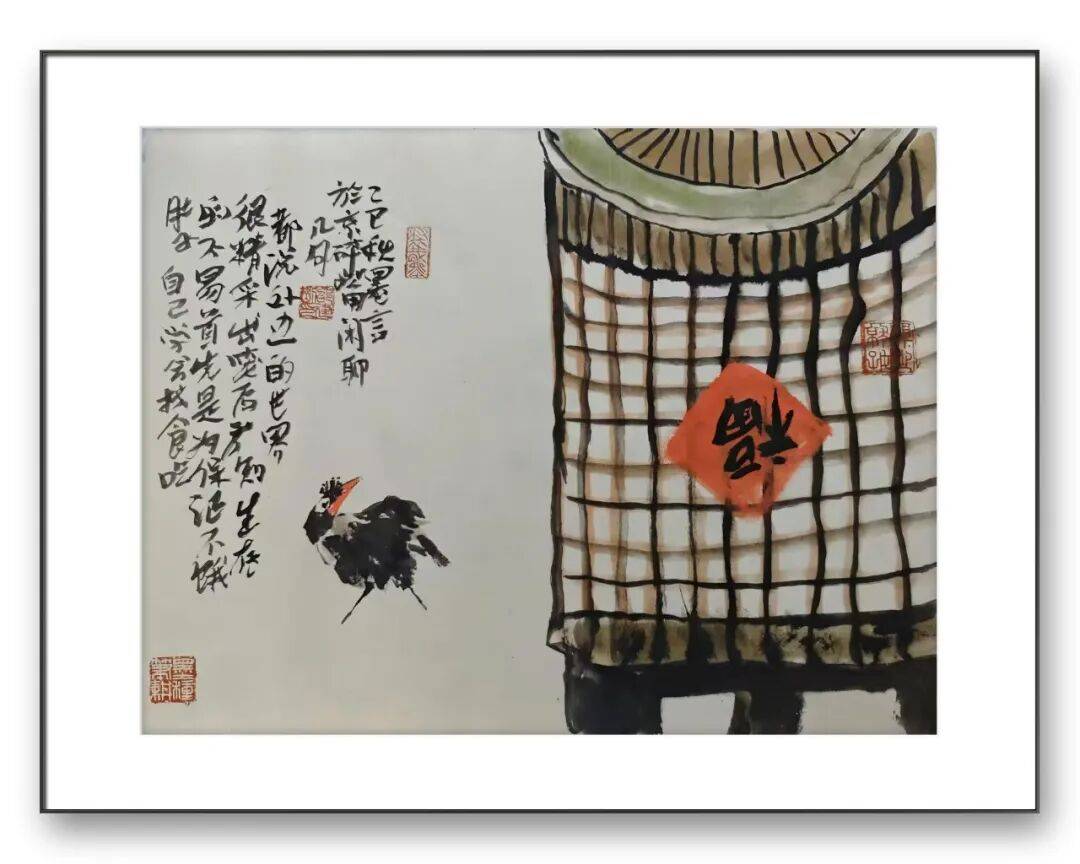 乙巳秋墨言
於京碎嘴闲聊
几句
都说外边的世界
很精采出后方知生存
的不易首先是保证不饿
肚子自己学会找食吃
福